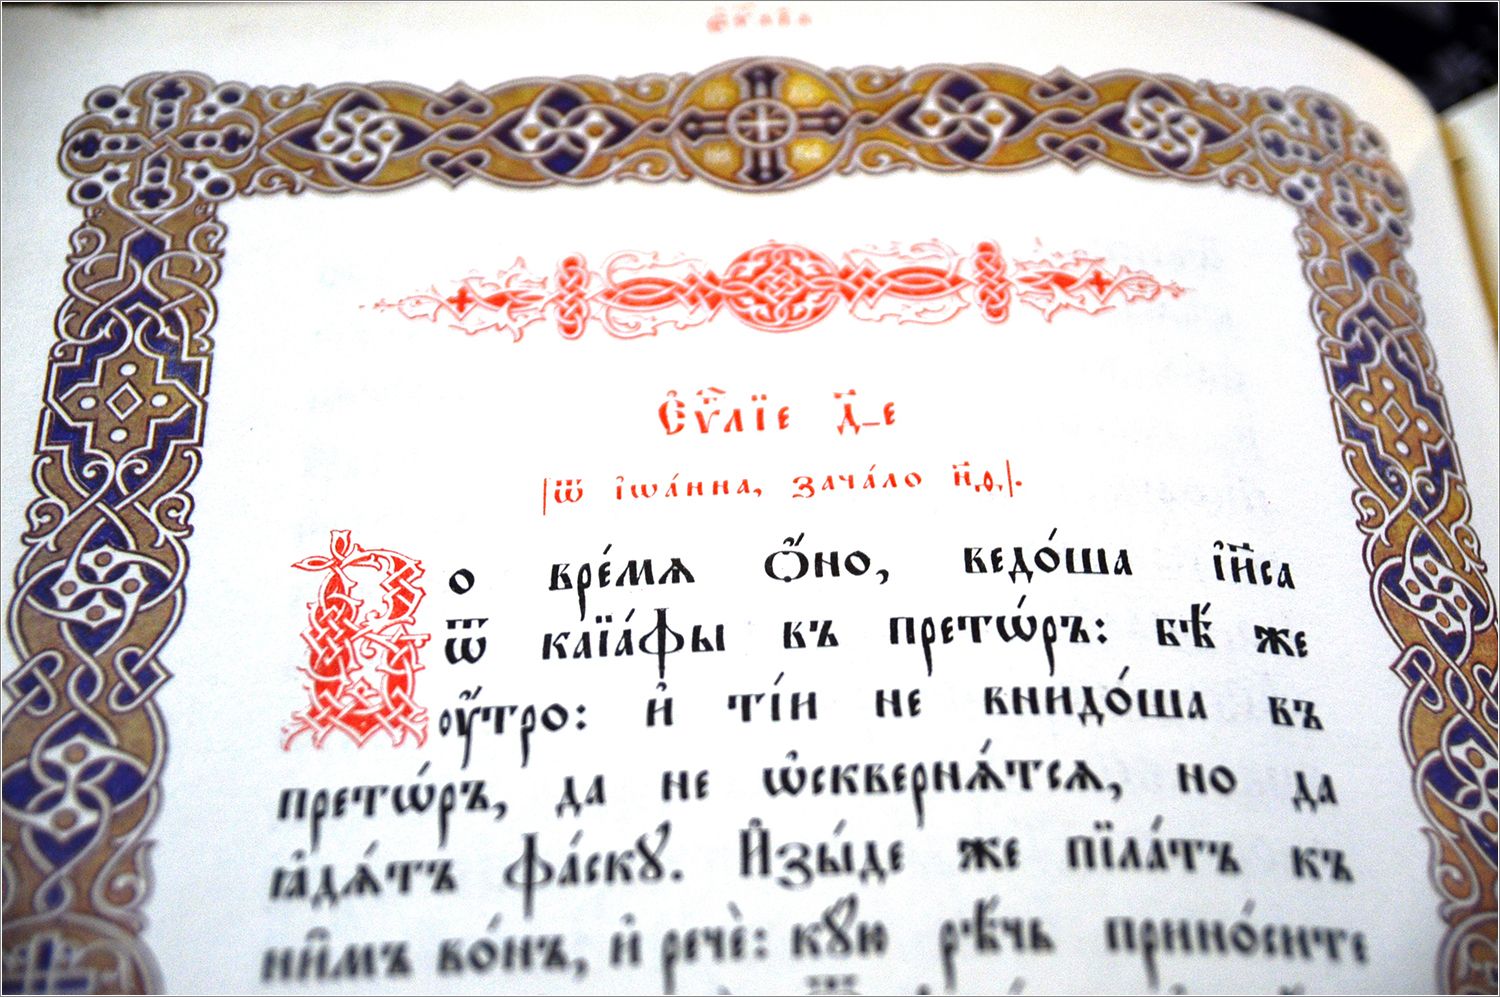 Є҆ѵⷢ҇лїе д҃_е
|ѿ і҆ѡа́нна, зача́ло н҃ѳ|.
Во вре́мѧ ѻ҆́но, ведо́ша і҆и҃са
ѿ каїа́фы въ претѡ́ръ: бѣ́ же
оу҆́тро: и҆ ті́и не внидо́ша въ
претѡ́ръ, да не ѡ҆сквернѧ́тсѧ, но да
ꙗ҆дѧ́тъ фа́скꙋ. И҆зы́де же пїла́тъ къ
ни̑мъ во́нъ, и҆ речѐ: кꙋ́ю рѣ́чь прино́сите